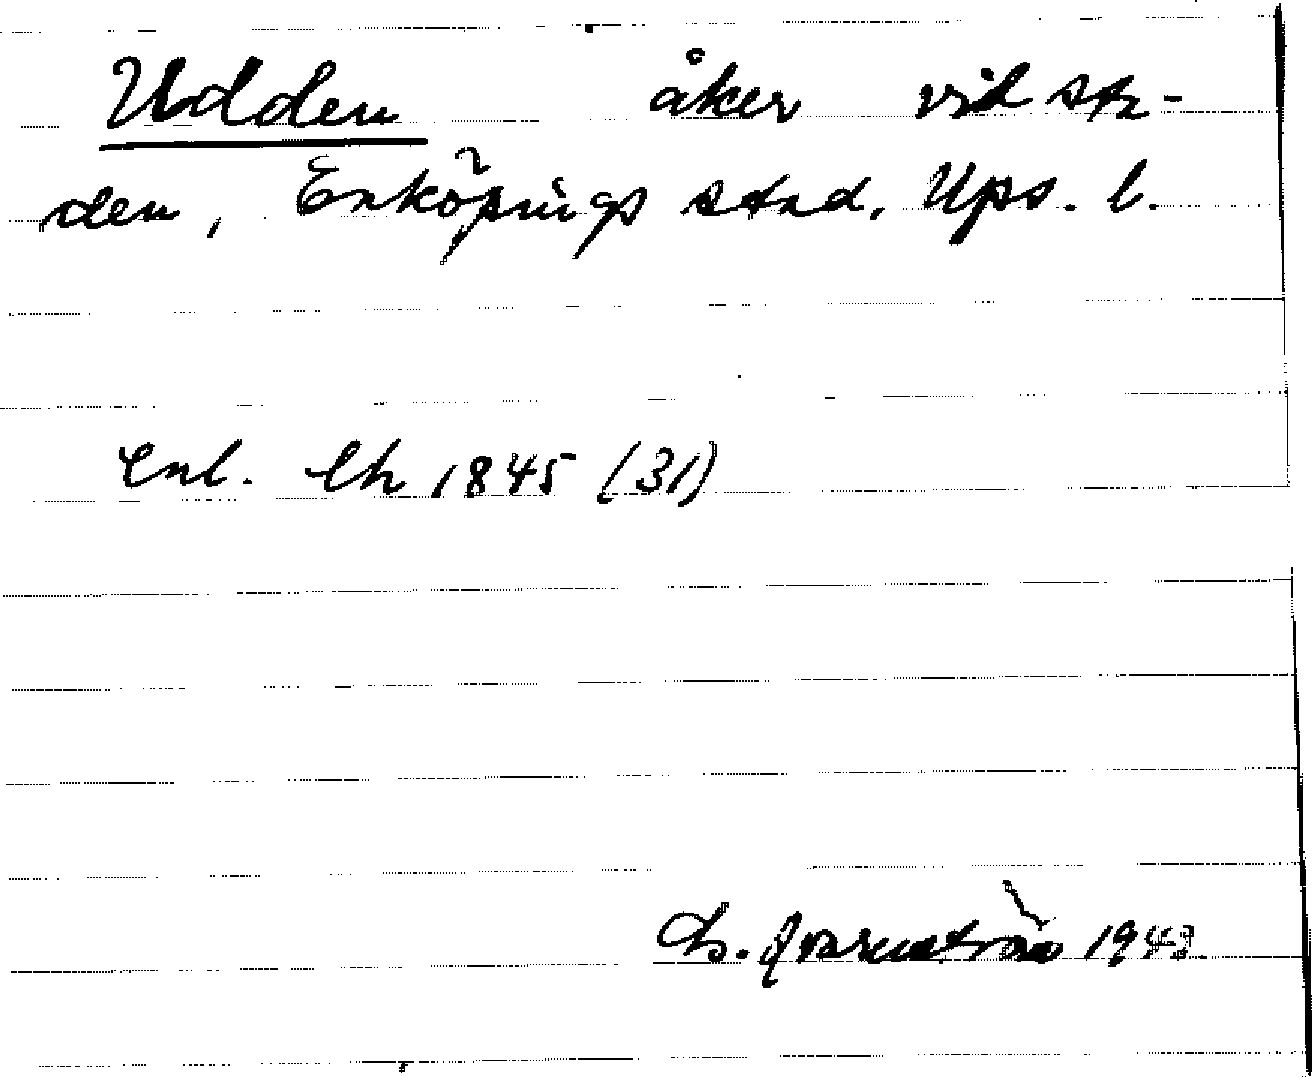 Udden åker vid sta-
den, Enköpings stad, Ups. l.
enl. Ch 1845 (31)
1943